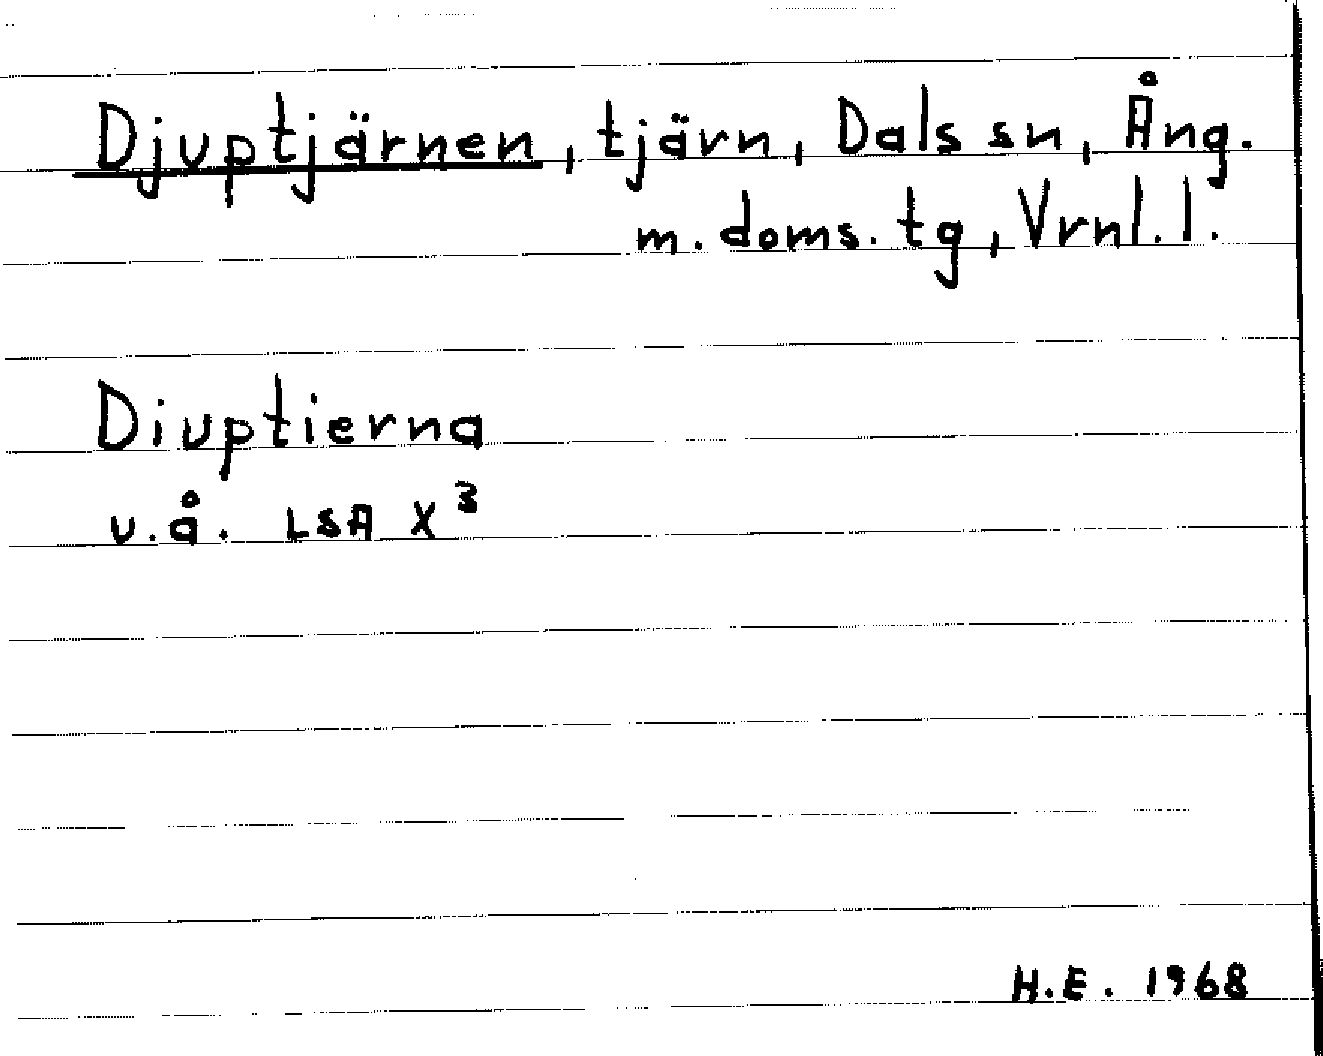 Djuptjärnen, tjärn, Dals sn, Ång.
m. doms. tg, Vrnl. l.
Diuptierna
u.å. LSA X³
H.E. 1968